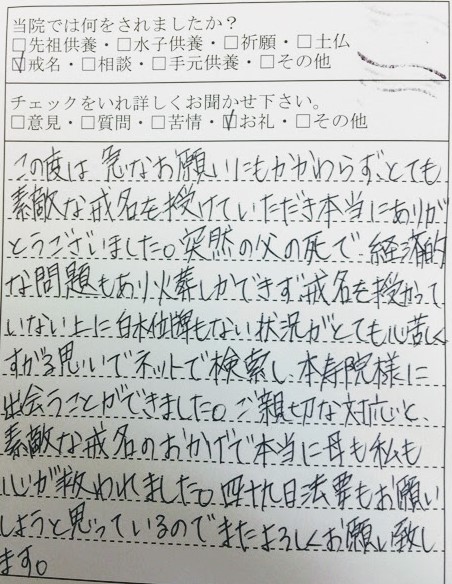 当院では何をされましたか？
□先祖供養・□水子供養・□祈願・□土仏
☑戒名・□相談・□手元供養・□その他
チェックをいれ詳しくお聞かせ下さい。
□意見・□質問・□苦情・☑お礼・□その他
この度は急なお願いにもかかわらず、とても
素敵な戒名を授けていただき本当にありが
とうございました。突然の父の死で、経済的
な問題もあり火葬しかできず戒名を授かって
いない上に白木位牌もない状況がとても心苦しく
すがる思いでネットで検索し、本寿院様に
出会うことができました。ご親切な対応と
素敵な戒名のおかげで本当に母も私も
心が救われました。四十九日法要もお願い
しようと思っているのでまたよろしくお願い致し
ます。